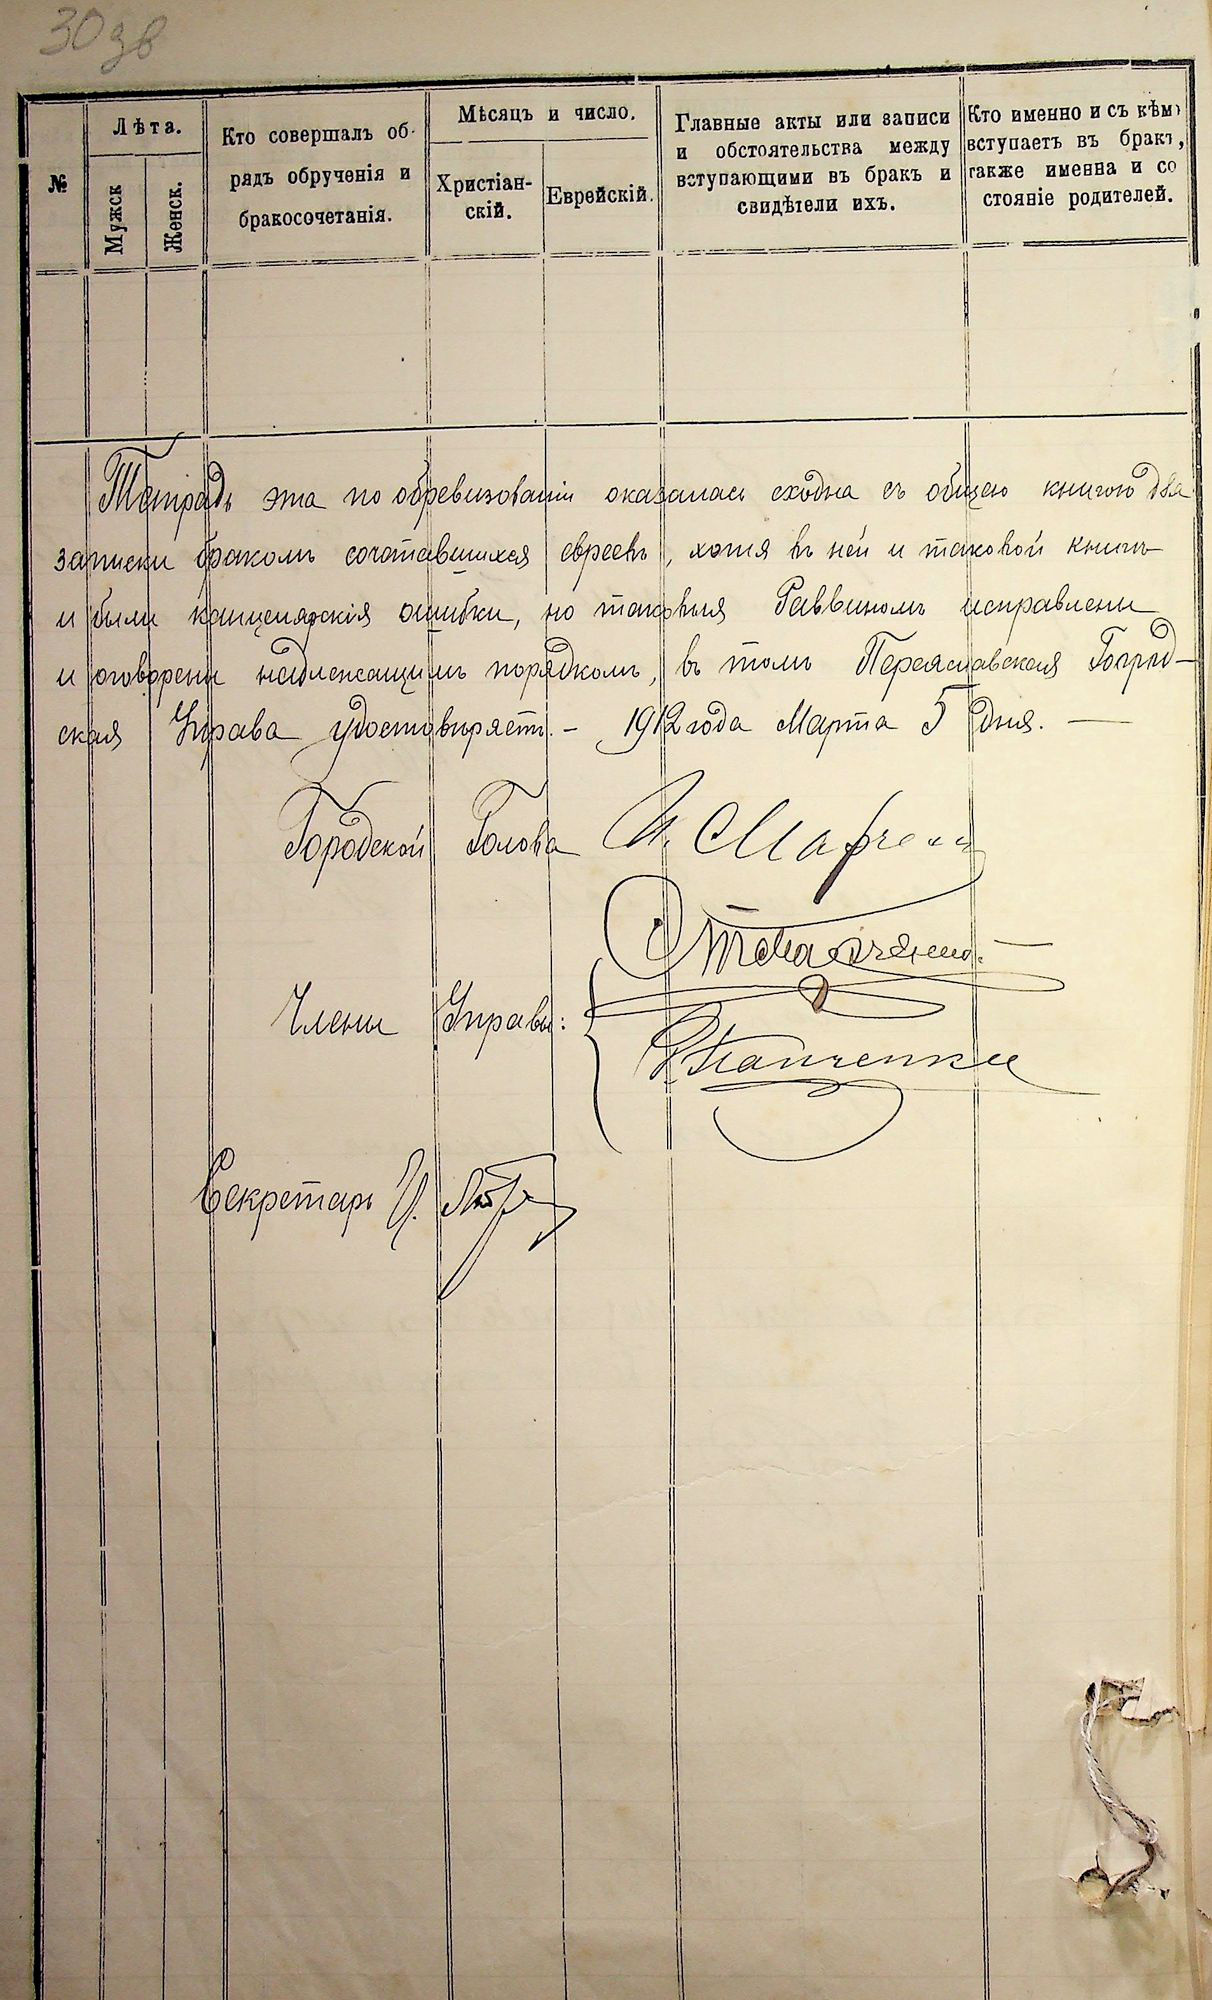 30 зв
№
Лѣта.
Мужск
Женск.
Кто совершалъ об-
рядъ обрученія и
бракосочетанія.
Мѣсяцъ и число.
Христіан-
скій.
Еврейскій.
Главные акты или записи
и обстоятельства между
вступающими въ бракъ и
свидѣтели ихъ.
Кто именно и съ кѣмъ
вступаетъ въ бракъ,
также имена и со
стояніе родителей.
Тетрадь эта по обревизованіи оказалась сходна съ общею книгою для
записки бракомъ сочетавшихся евреевъ, хотя въ ней и таковой книгѣ
и были канцелярскія ошибки, но таковыя Раввиномъ исправлены
и оговорены надлежащимъ порядкомъ, въ томъ Переяславская Город-
ская Управа удостовѣряетъ. – 1912 года Марта 5 дня. —
Городской Голова И.
Члены Управы:
Панченко
Секретарь И.